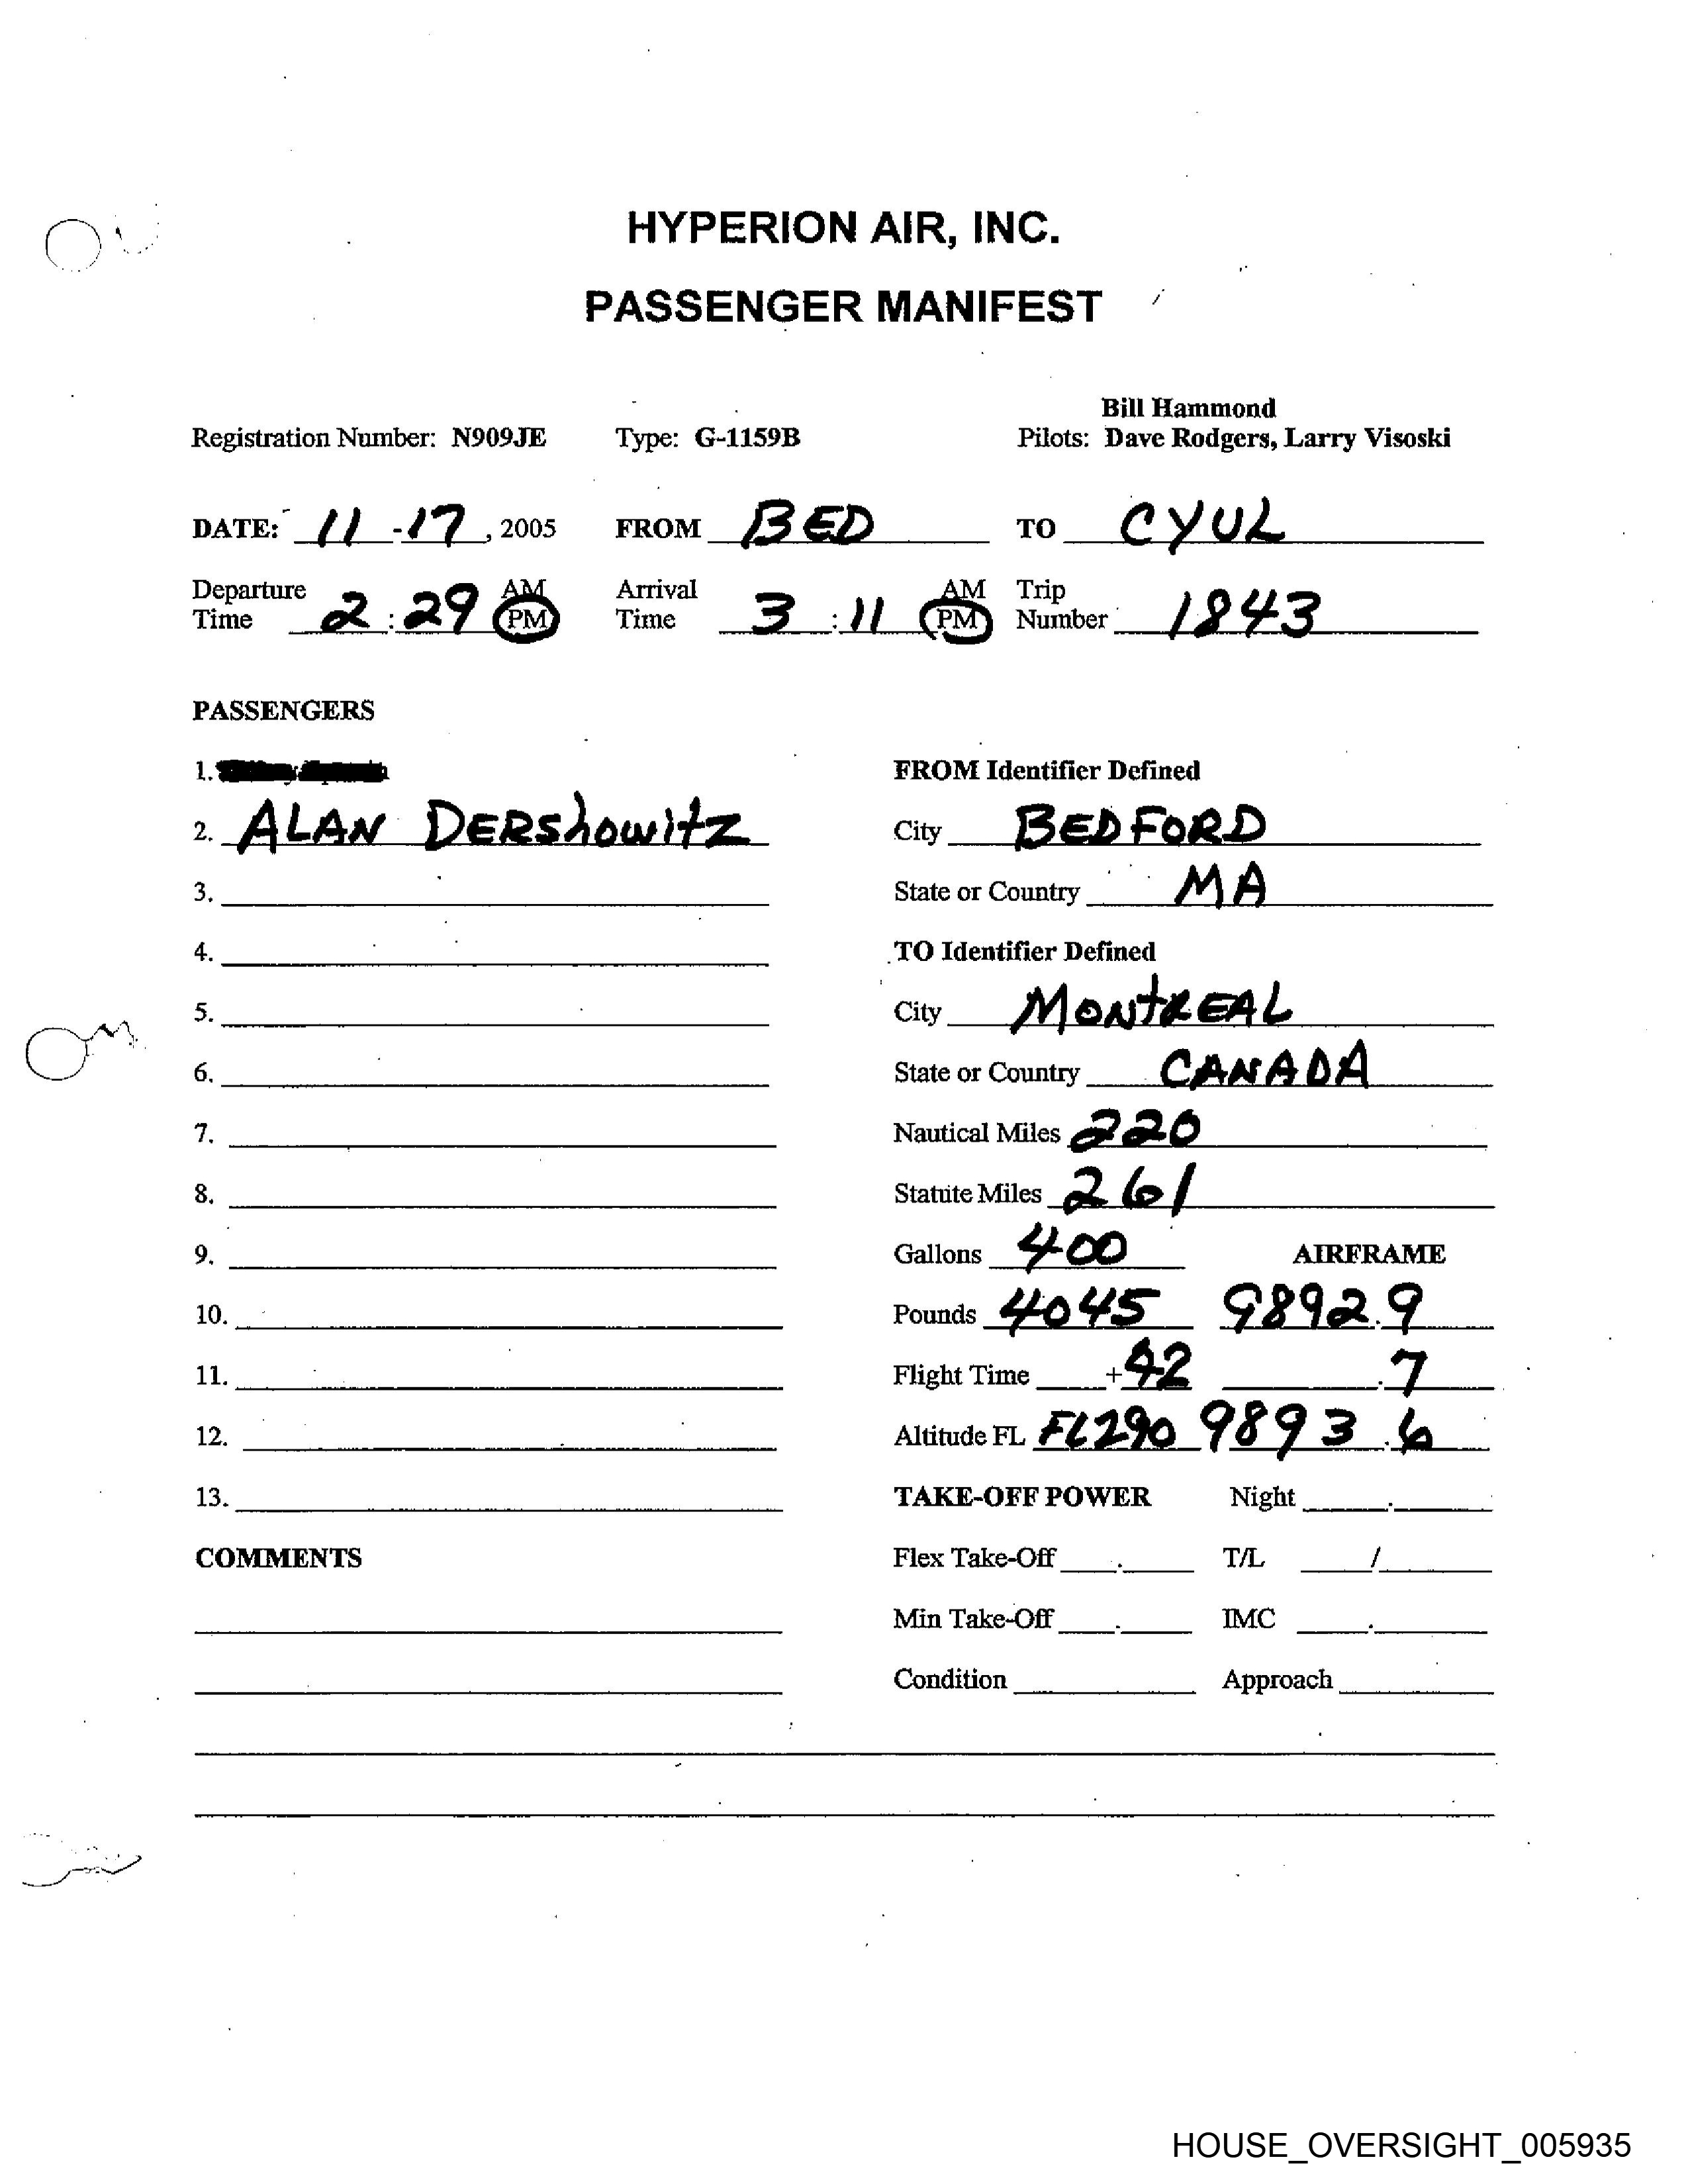 HYPERION AIR, INC.
PASSENGER MANIFEST
Bill Hammond
Registration Number: N909JE Type: G-1159B Pilots: Dave Rodgers, Larry Visoski
DATE: 11-17, 2005 FROM BED TO CYUL
Departure Time 2:29 AM PM Arrival Time 3:11 AM PM Trip Number 1843
PASSENGERS
1. FROM Identifier Defined
2. ALAN DERShowitz City BEDFORD
3. State or Country MA
4. TO Identifier Defined
5. City MONtREAL
6. State or Country CANADA
7. Nautical Miles 220
8. Statute Miles 261
9. Gallons 400 AIRFRAME
10. Pounds 4045 9892.9
11. Flight Time +42 .7
12. Altitude FL FL290 9893.6
13. TAKE-OFF POWER Night .
COMMENTS Flex Take-Off . T/L /
Min Take-Off . IMC .
Condition Approach
HOUSE_OVERSIGHT_005935